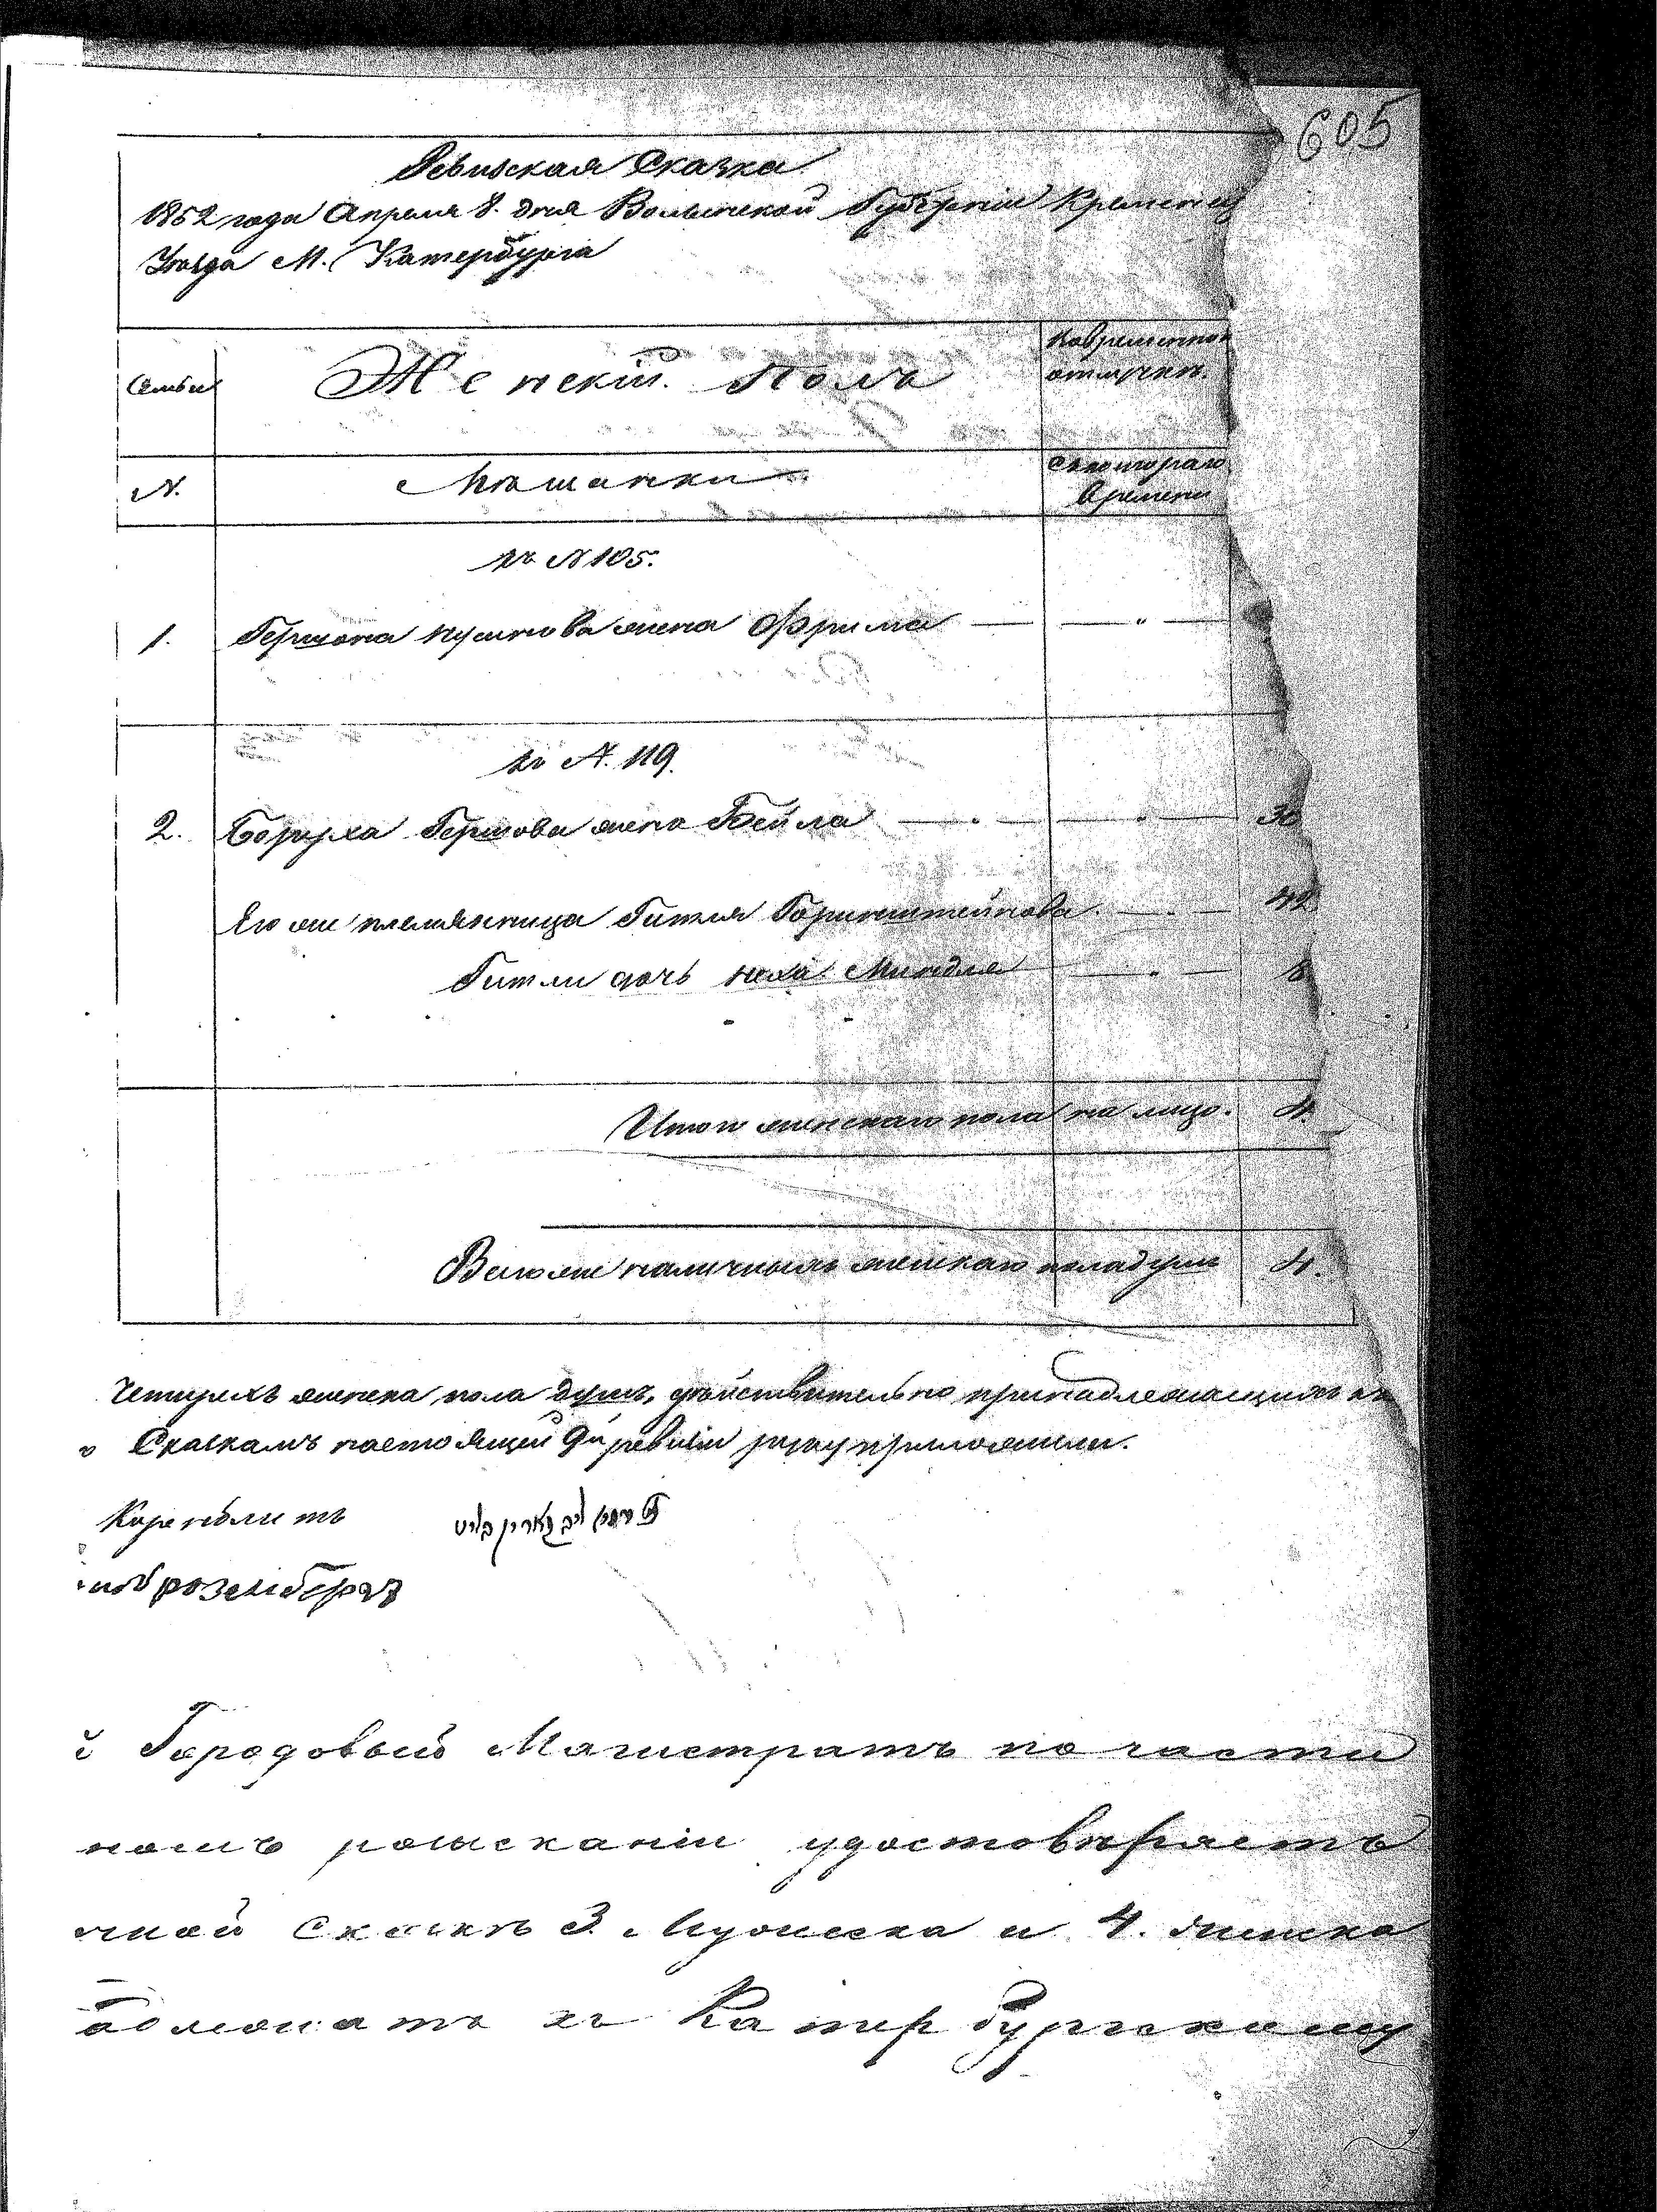 605
Ревизская Сказка
1852 года Апреля 8. дня Волынской Губерніи Кременец
Уезда М. Катербурга
Семьи
Женскій Полъ
Во временной отлучке.
N.
Мещанки
С котораго времени
къ N 105.
1. Гершона жена Фрима — — " —
къ N. 119.
2. Боруха Гершова жена Бейла — " — " — 36
Его же племянница Гитля Горинштейнова. — " — 42
Гитли дочь Хая Миндля — " — 8
Итого женскаго пола на лицо. 4.
Всего же наличныхъ женскаго пола душъ 4.
Четырехъ женска пола душъ, действительно принадлежащихъ къ
Сказкамъ настоящей 9й ревизіи руку приложили.
Коренблитъ
розенбергъ
й Городовый Магистратъ по части
номъ розысканіи удостоверяетъ
нной Сказке 3. Мужеска и 4. женска
адлежатъ къ Катербургскому